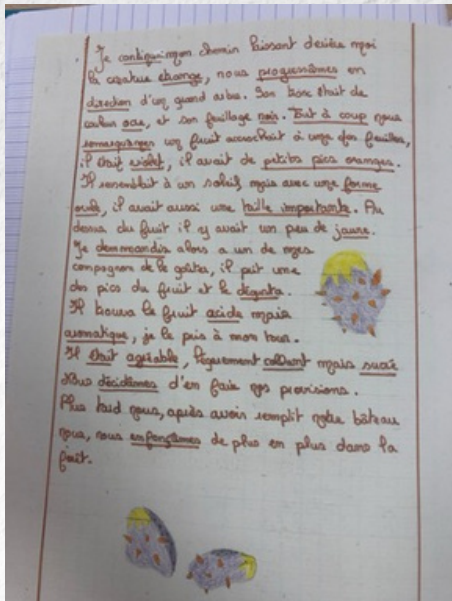 Je continuai mon chemin laissant derière moi
la créature étrange, nous progressâmes en
direction d'un grand arbre. Son tronc était de
couleur ocre, et son feuillage noir. Tout à coup nous
remarquâmes un fruit accrochait à une des feuilles,
il était violet, il avait de petits pics oranges.
Il ressemblait à un soleil mais avec une forme
ovale, il avait aussi une taille importante. Au
dessus du fruit il y avait un peu de jaune.
Je demmandis alors a un de mes
compagnon de le goûter, il prit une
des pics du fruit et le dégusta.
Il trouva le fruit acide mais
aromatique, je le pris à mon tour.
Il était agréable, légèrement collant mais sucré
Nous décidâmes d'en faire nos provisions.
Plus tard nous, après avoir remplit notre bâteau
nous, nous enfonçâmes de plus en plus dans la
forêt.